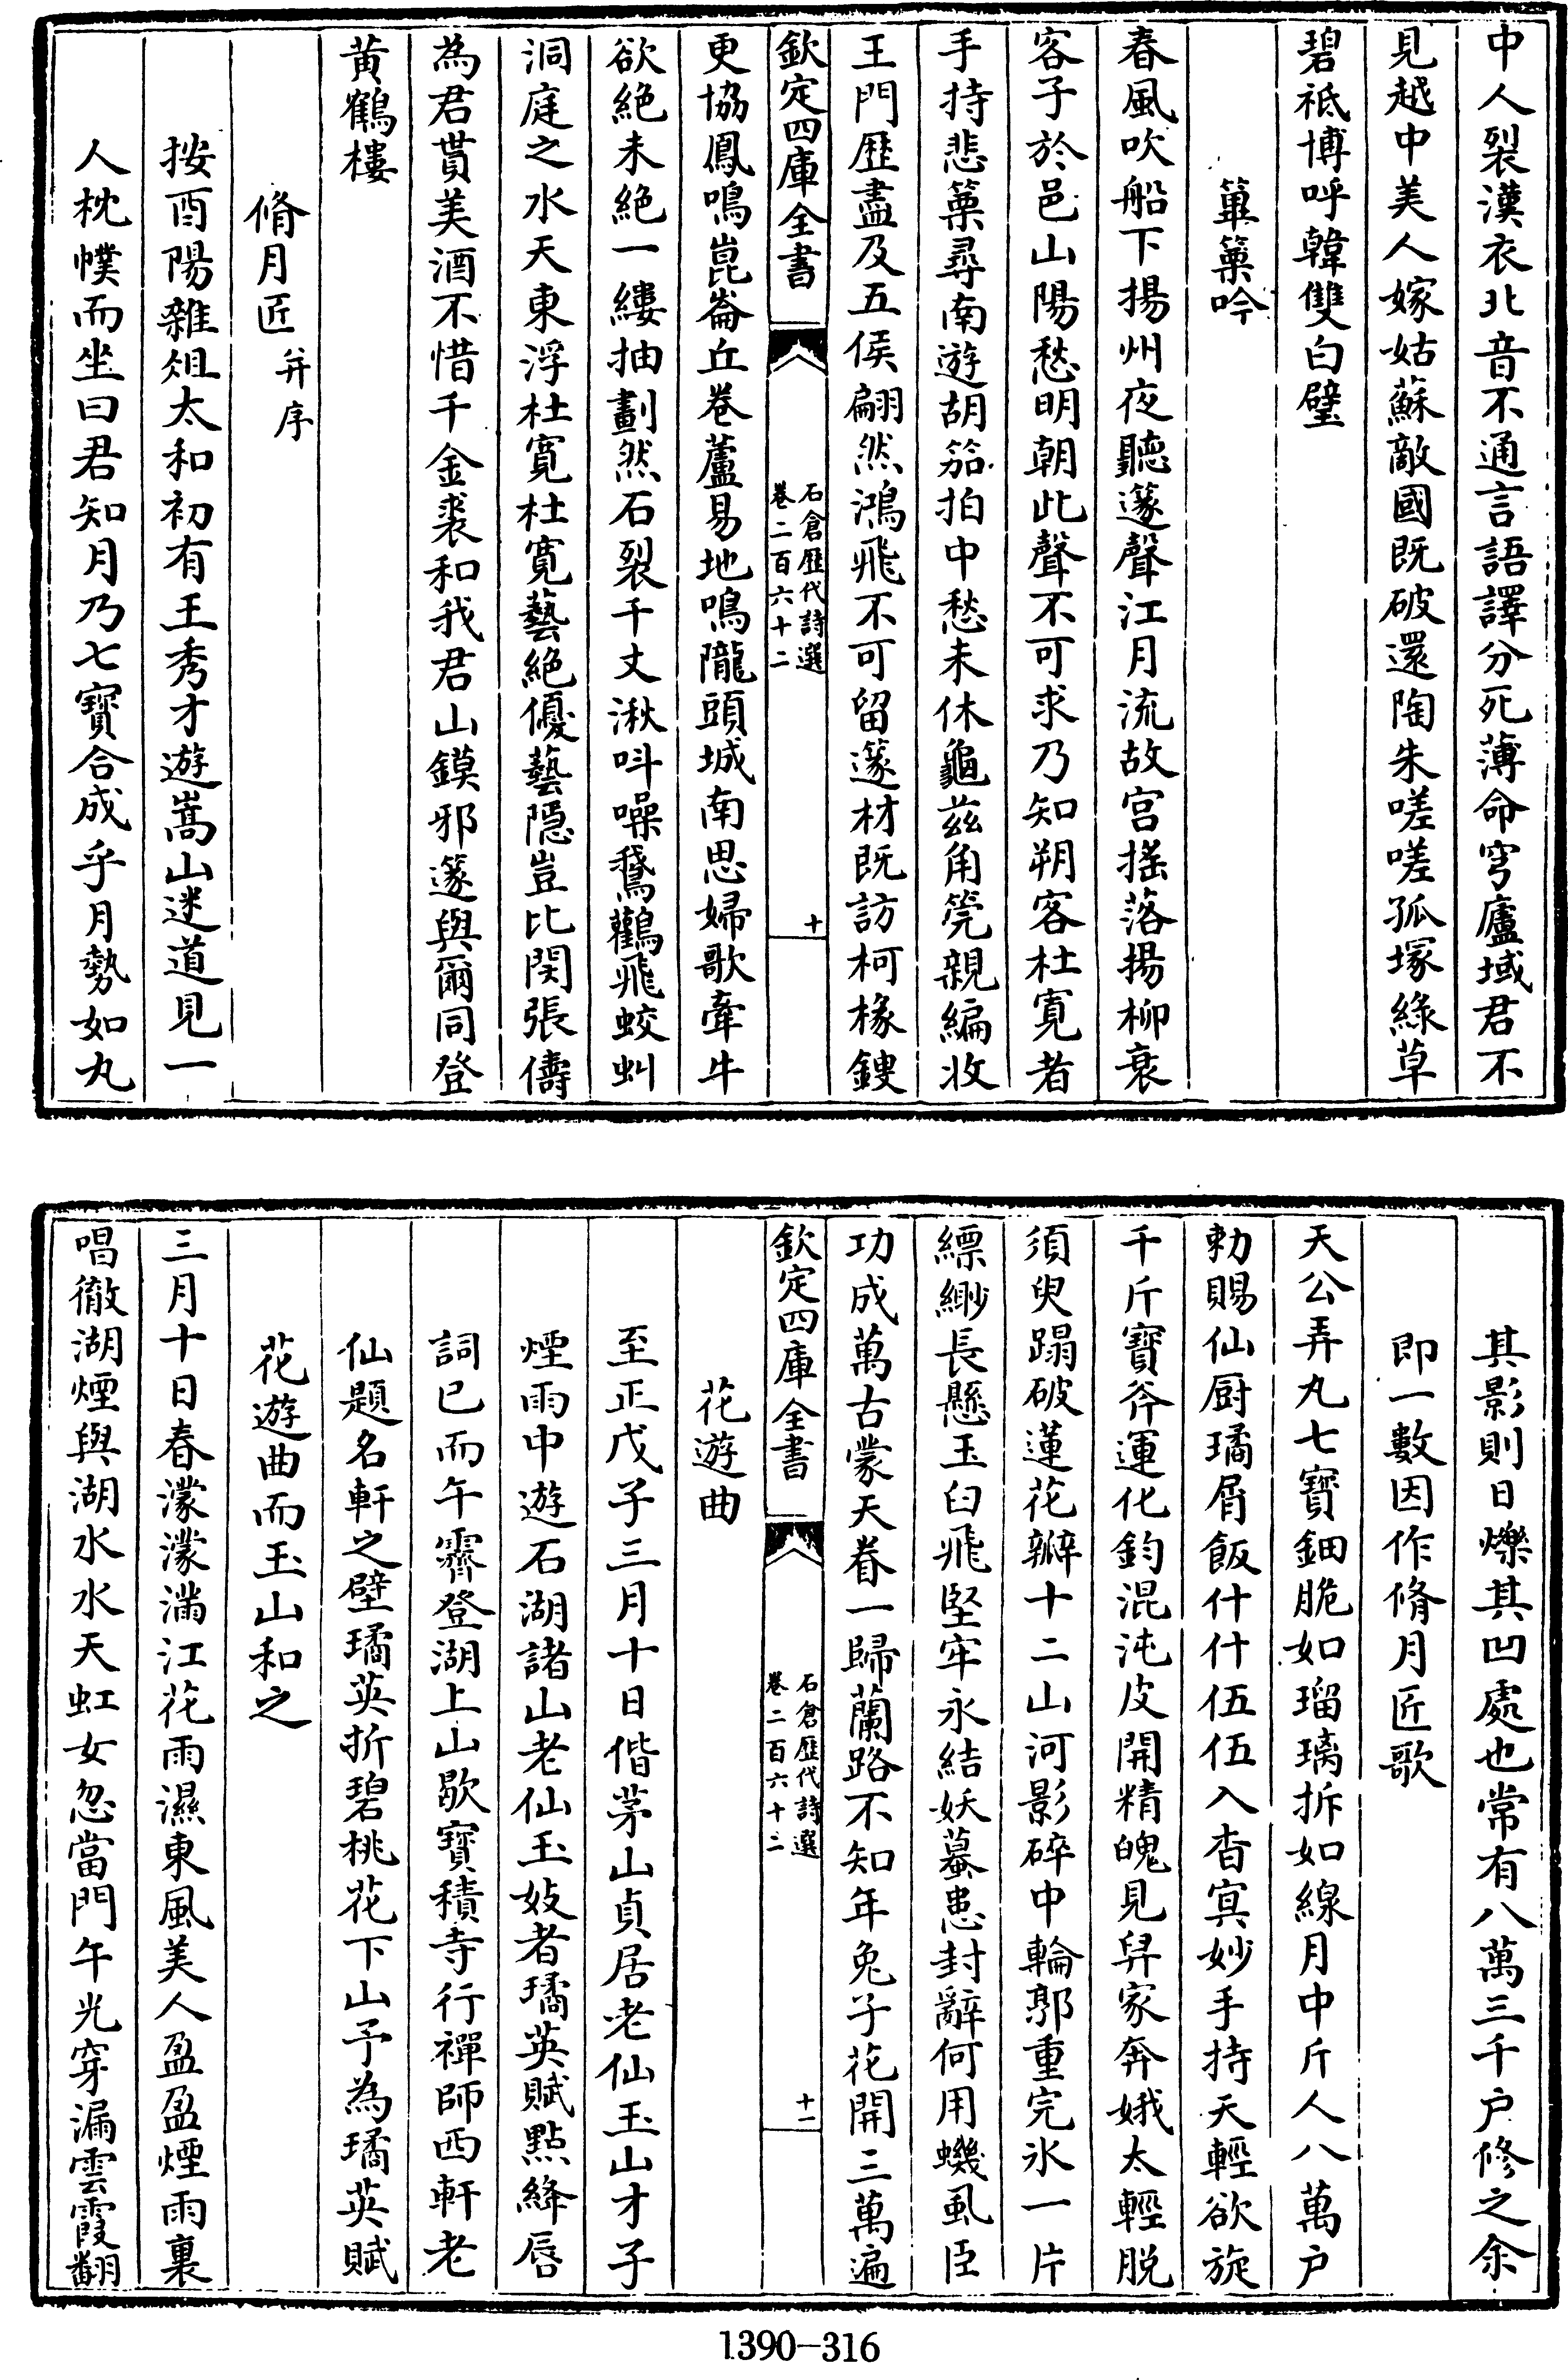 中人裂漢衣北音不通言語譯分死薄命穹廬域君不
見越中美人嫁姑蘇敵國既破還陶朱嗟嗟孤塚綠草
碧祗博呼韓雙白璧
篳篥吟
春風吹船下揚州夜聽篴聲江月流故宫揺落揚柳衰
客子於邑山陽愁明朝此聲不可求乃知朔客杜寛者
手持悲篥尋南遊胡笳拍中愁未休龜兹角筦親編收
王門歴盡及五侯翩然鴻飛不可留篴材既訪柯椽鎪
欽定四庫全書
石倉歴代詩選
卷二百六十二
十
更協鳳鳴崑崙丘卷蘆易地鳴隴頭城南思婦歌牽牛
欲絶未絶一縷抽劃然石裂千丈湫呌噪鵞鸛飛蛟虬
洞庭之水天東浮杜寛杜寛藝絶優藝隠豈比関張儔
為君貰美酒不惜千金裘和我君山鏌邪篴與爾同登
黄鶴樓
脩月匠并序
按酉陽雜俎太和初有王秀才遊嵩山迷道見一
人枕幞而坐曰君知月乃七寶合成乎月勢如丸
其影則日爍其凹處也常有八萬三千户修之余
即一數因作脩月匠歌
天公弄丸七寶鈿脆如瑠璃拆如線月中斤人八萬户
勅賜仙厨璚屑飯什什伍伍入杳冥妙手持天輕欲旋
千斤寶斧運化鈞混沌皮開精魄見羿家奔娥太輕脱
須臾蹋破蓮花瓣十二山河影碎中輪郭重完氷一片
縹緲長懸玉臼飛堅牢永結妖蟇患封辭何用蟣虱臣
功成萬古蒙天眷一歸蘭路不知年兔子花開三萬遍
欽定四庫全書
石倉歴代詩選
卷二百六十二
十一
花遊曲
至正戊子三月十日偕茅山貞居老仙玉山才子
煙雨中遊石湖諸山老仙玉妓者璚英賦點絳唇
詞已而午霽登湖上山歇寶積寺行禪師西軒老
仙題名軒之壁璚英折碧桃花下山予為璚英賦
花遊曲而玉山和之
三月十日春濛濛滿江花雨濕東風美人盈盈煙雨裏
唱徹湖煙與湖水水天虹女忽當門午光穿漏雲霞翻
1390-316